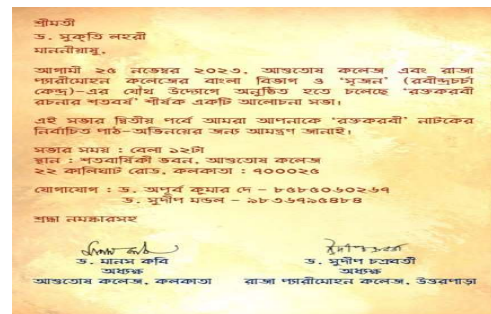 শ্রীমতী
ড. সুকৃতি লহরী
মাননীয়াষু,
আগামী ২৫ নভেম্বর ২০২৩, আশুতোষ কলেজ এবং রাজা
প্যারীমোহন কলেজের বাংলা বিভাগ ও 'সৃজন' (রবীন্দ্রচর্চা
কেন্দ্র)-এর যৌথ উদ্যোগে অনুষ্ঠিত হতে চলেছে 'রক্তকরবী
রচনার শতবর্ষ' শীর্ষক একটি আলোচনা সভা।
এই সভার দ্বিতীয় পর্বে আমরা আপনাকে 'রক্তকরবী' নাটকের
নির্বাচিত পাঠ-অভিনয়ের জন্য আমন্ত্রণ জানাই।
সভার সময় : বেলা ১২টা
স্থান : শতবার্ষিকী ভবন, আশুতোষ কলেজ
২২ কালিঘাট রোড, কলকাতা : ৭০০০২৫
যোগাযোগ : ড. অপূর্ব কুমার দে – ৮৫৮৫০৬০২৬৭
ড. সুদীপ মন্ডল – ৯৮৩৬৭৯৫৪৮৪
শ্রদ্ধা নমস্কারসহ
ড. মানস কবি ড. সুদীপ চক্রবর্তী
অধ্যক্ষ অধ্যক্ষ
আশুতোষ কলেজ, কলকাতা রাজা প্যারীমোহন কলেজ, উত্তরপাড়া